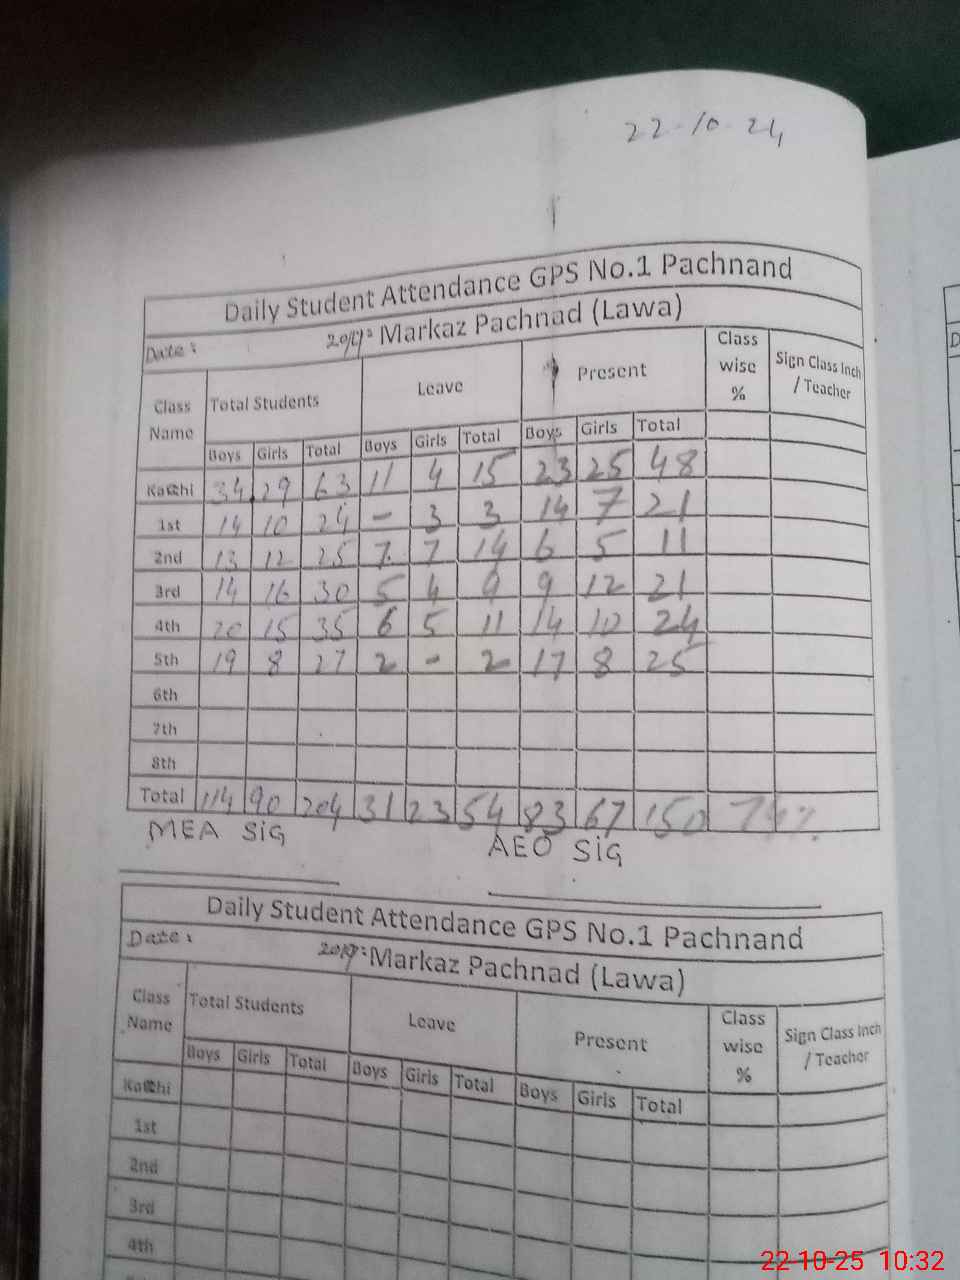 22-10-24
Daily Student Attendance GPS No.1 Pachnand
Date: Markaz Pachnad (Lawa)
Class Name Total Students Leave Present Class wise % Sign Class Inch / Teacher
Boys Girls Total Boys Girls Total Boys Girls Total
Katchi 34 29 63 11 4 15 23 25 48
1st 14 10 24 - 3 3 14 7 21
2nd 13 12 25 7 7 14 6 5 11
3rd 14 16 30 5 4 9 9 12 21
4th 20 15 35 6 5 11 14 10 24
5th 19 8 27 2 - 2 17 8 25
6th
7th
8th
Total 114 90 204 31 23 54 83 67 150
MEA SiG AEO SiG
Daily Student Attendance GPS No.1 Pachnand
Date: Markaz Pachnad (Lawa)
Class Name Total Students Leave Present Class wise % Sign Class Inch / Teacher
Boys Girls Total Boys Girls Total Boys Girls Total
Katchi
1st
2nd
3rd
4th
22-10-25 10:32